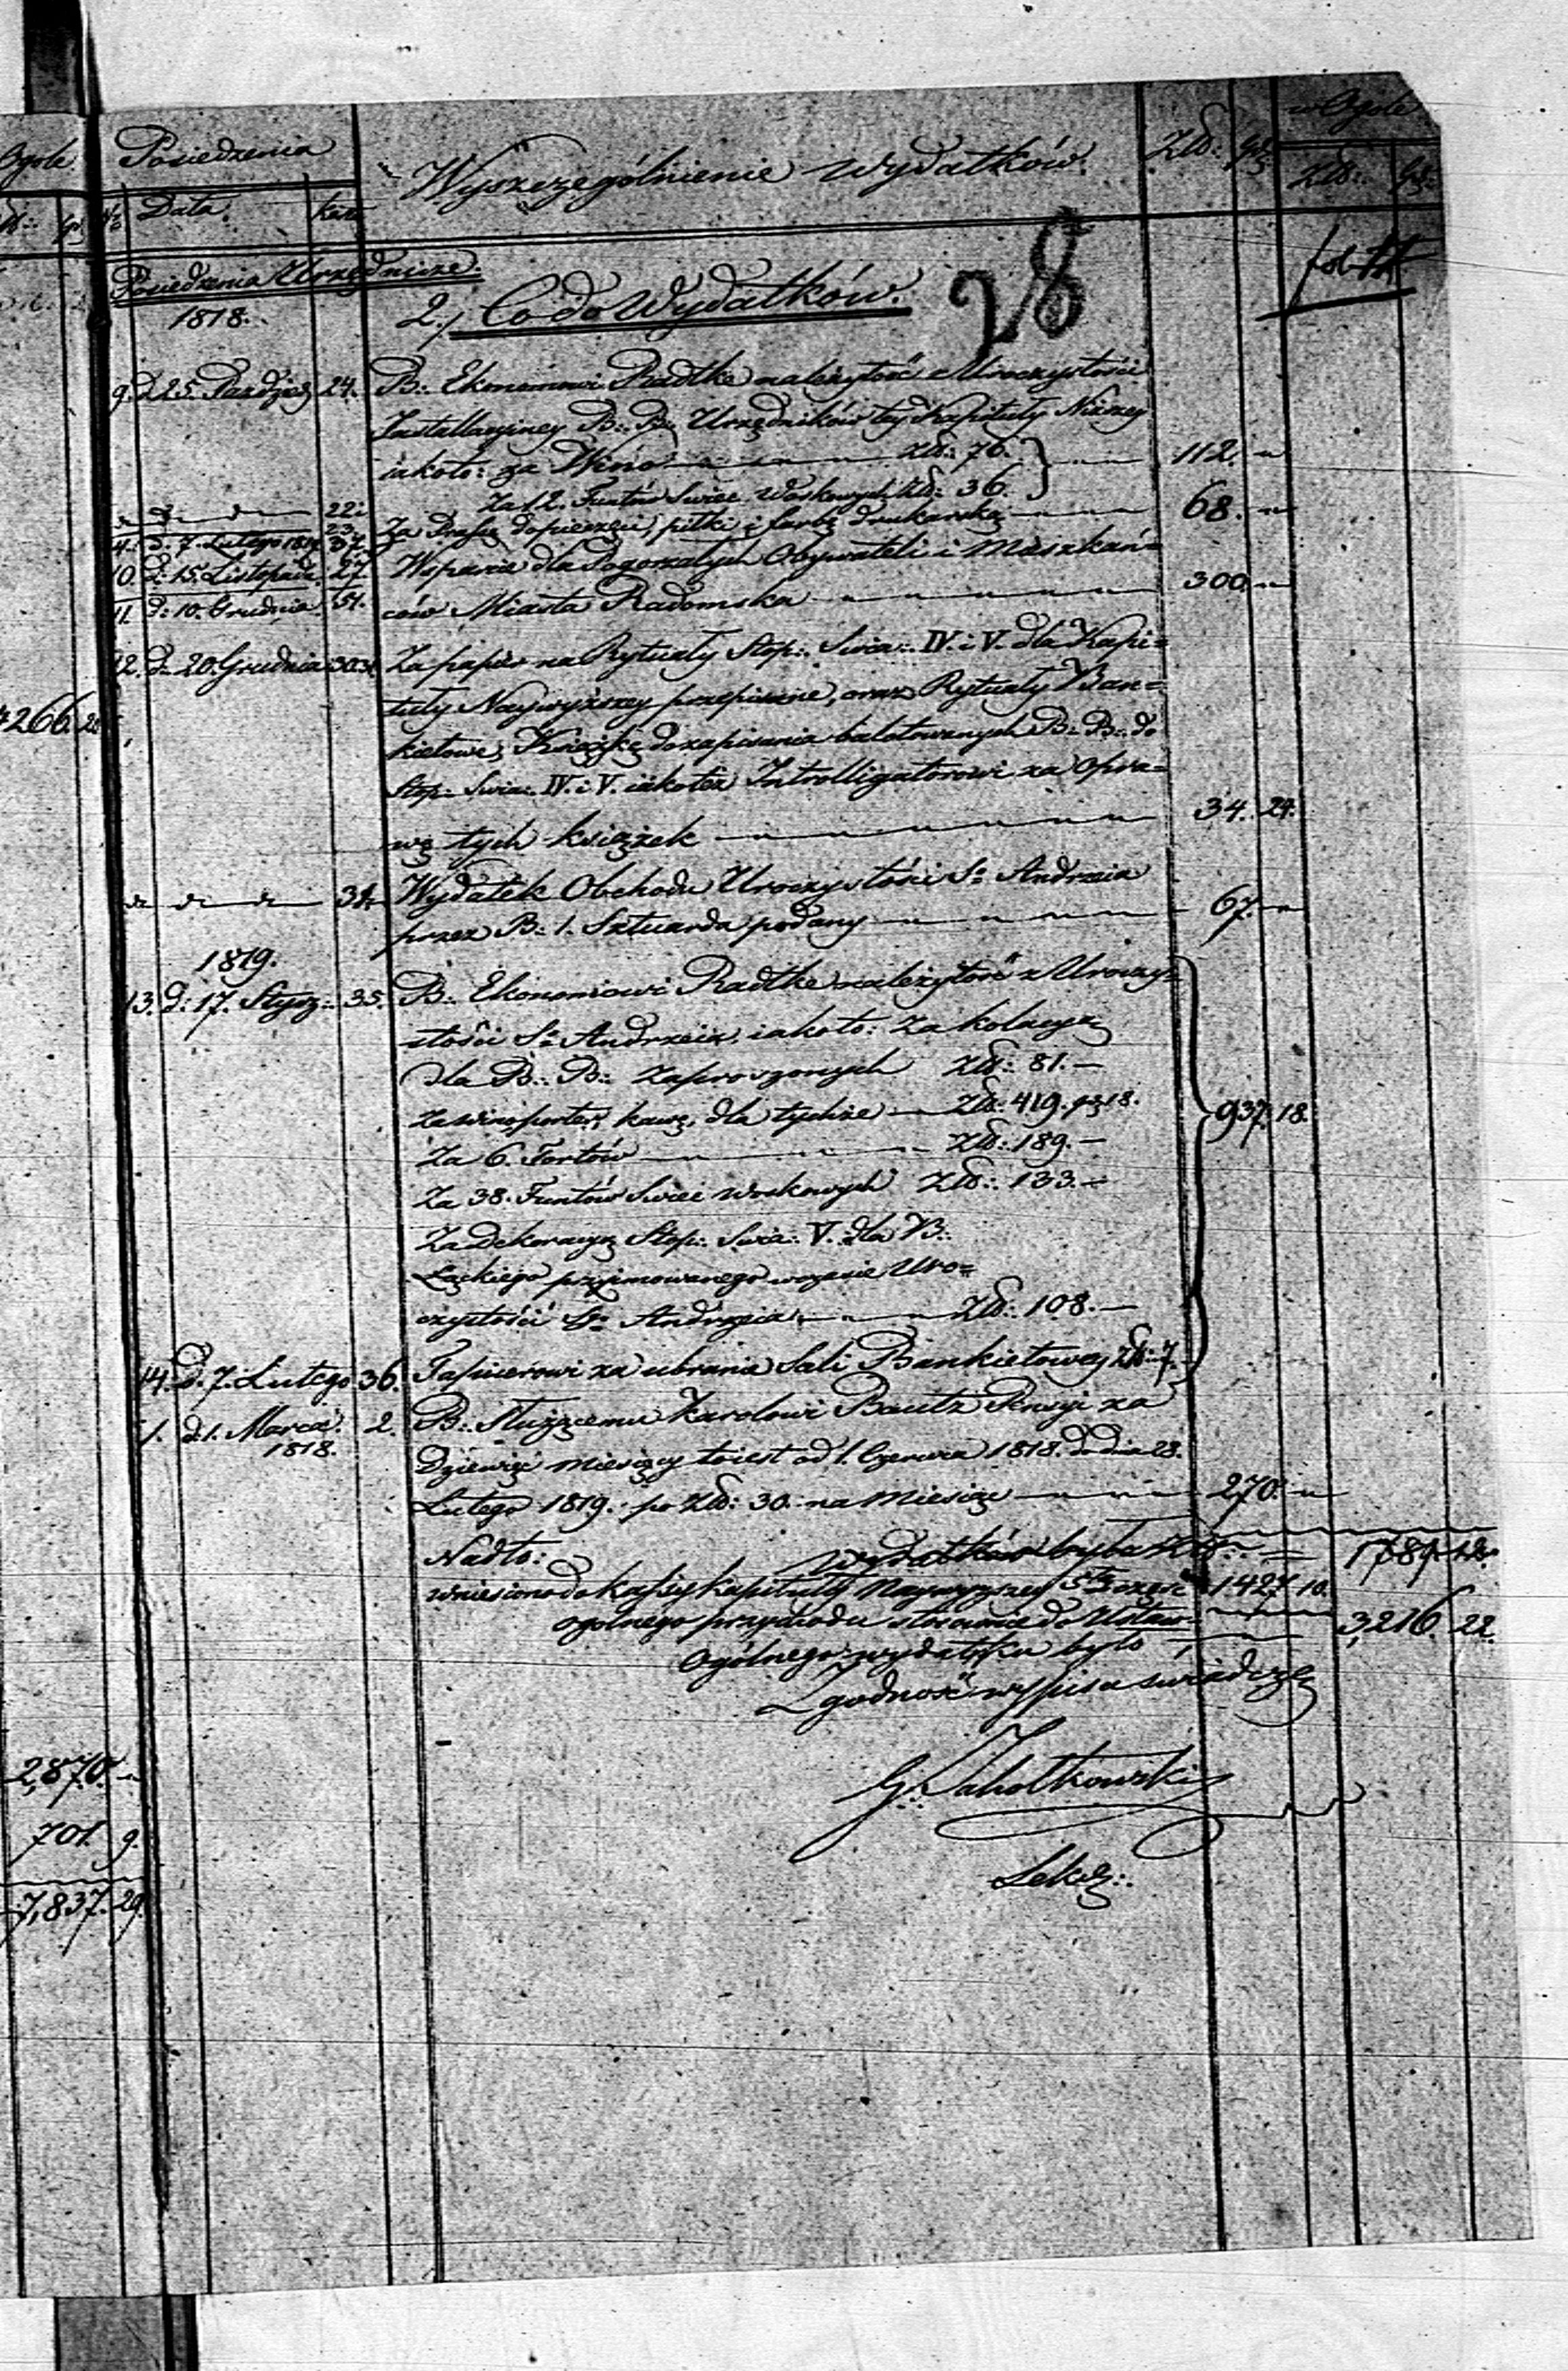 Ogole
Posiedzenia
Wyszczególnienie Wydatków.
Zł: gr
w Ogole
Zł: gr:
No Data. karta
Posiedzenia Urzędnicze.
1818.
2.) Co do Wydatków.
28
fol.
9. d 25. Paździer 24. B: Ekonomowi Radtke należytość z Uroczystości
Installacyiney B: B: Urzędników tey Kapituły Niższey
iakoto: za Wino Zł: 76.
112.
Za 12. Funtów Swiec Woskowych Zł: 36.
22. 23. Za Prasę do pieczęci, pilki i farbę drukarską 68.
4. d. 7. Lutego 1819 37.
10. d: 15. Listopada 27. Wsparcie dla Pogorzałych Obywateli i Mieszkań=
11. d: 10. Grudnia 51. ców Miasta Radomska 300.
12. d. 20. Grudnia 30.31 Za papier na Rytuały Stop: Swia: IV. i V. dla Kapi=
tuły Naywyższey przepisane, oraz Rytuały Ban=
4266. 20
kietowe, Książkę do zapisania balotowanych B: B: do
Stop: Swia: IV. i V. iakoteż Introlligatorowi za opra=
wę tych książek 34. 24.
34. Wydatek Obchodu Uroczystości S: Andrzeia
przez B: 1. Sztuarda podany 67.
1819.
13. d: 17. Stycz: 35. B: Ekonomowi Radtke należytość z Uroczy=
stości S: Andrzeia, iakoto: Za kolacyą
dla B: B: Zaproszonych Zł: 81.—
Za wino, porter, kawę, dla tychże — Zł: 419. gr 18.
937. 18.
Za 6. Tortów Zł: 189.—
Za 38. Funtów Swiec Woskowych Zł: 133.—
Za Dekoracyą Stop: Swia: V. dla B:
Łąckiego przyjmowanego w czasie Uro=
czystości S: Andrzeia Zł: 108.—
14. D. 7. Lutego 36. Tapicerowi za ubranie Sali Bankietowey Zł: 7.
1. d. 1. Marca 2. B: Służącemu Karolowi Bautz Pensyi za
1818.
Dziewięć miesięcy toiest od 1. Czerwca 1818. do dnia 28.
Lutego 1819. po Zł: 30. na Miesiąc 270.
Nadto: Wydatków było Zł: 1789. 12.
wniesiono do kassy Kapituły Naywyższey część 1427. 10.
ogolnego przychodu stosownie do Ustaw
Ogólnego wydatku było 3,216. 22.
Zgodność wypisu świadczę
2,870.
701. 9.
7,837. 29.
Sekr: